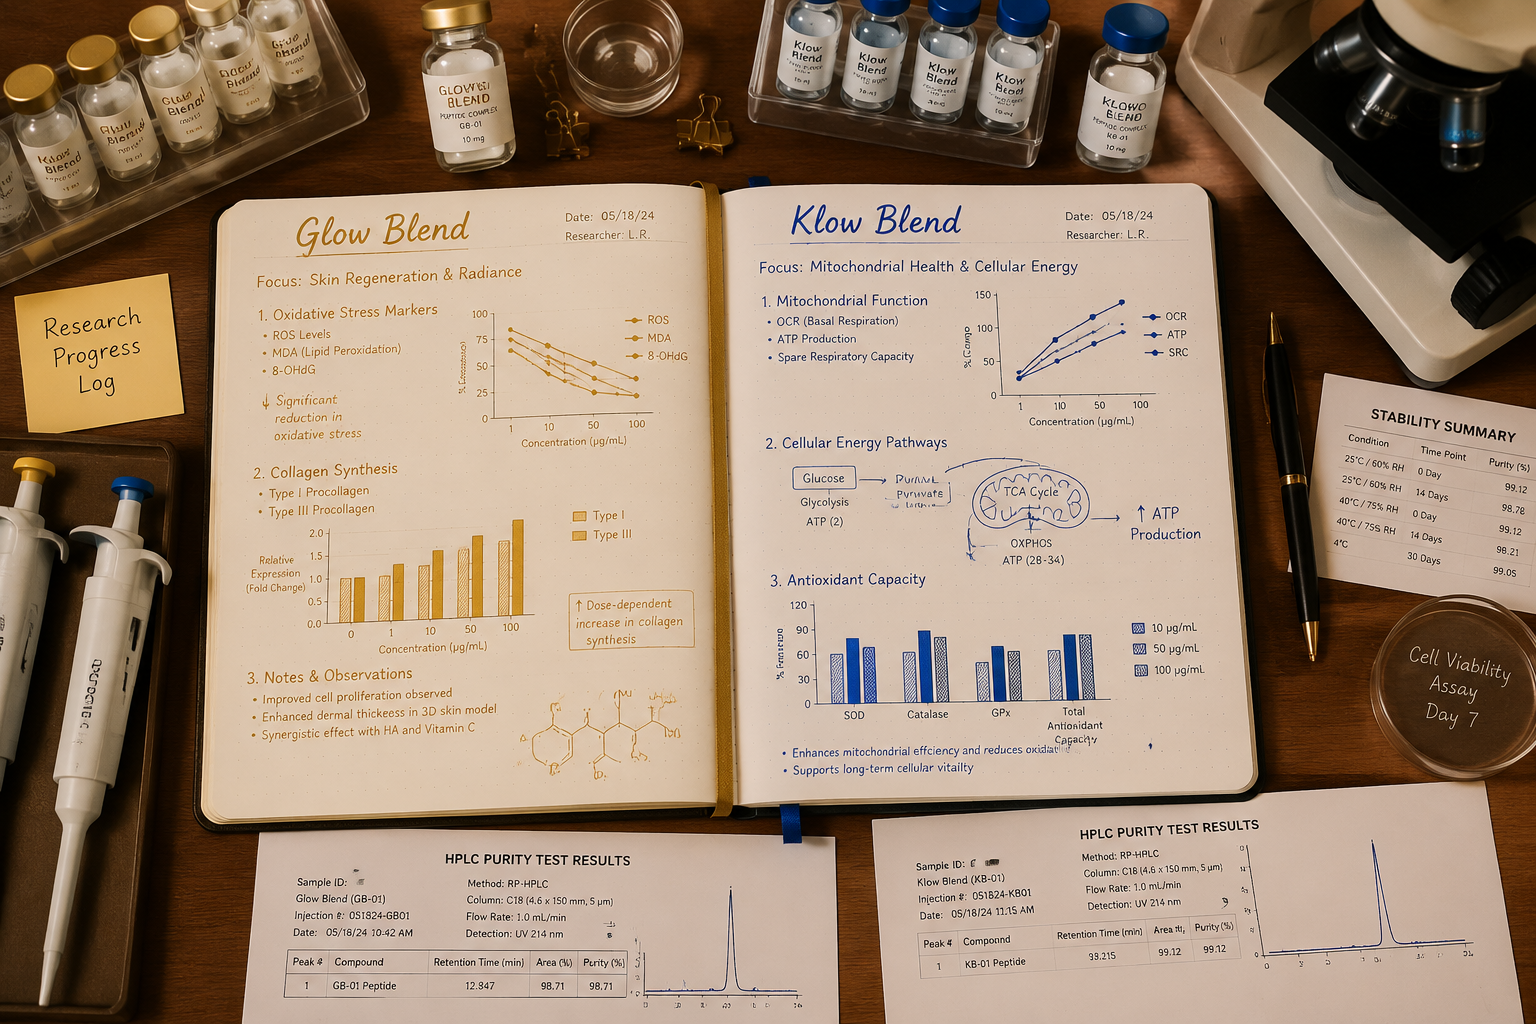 GLOWEI
BLEND
PEPTIDE COMPLEX
GB-01
10 mg
Klow
Blend
Klow
Blend
Klow
Blend
Klow
KLOWO
BLEND
10 mg
Research
Progress
Log
Glow Blend
Date: 05/18/24
Researcher: L.R.
Focus: Skin Regeneration & Radiance
1. Oxidative Stress Markers
• ROS Levels
• MDA (Lipid Peroxidation)
• 8-OHdG
↓ Significant
reduction in
oxidative stress
100
75
50
25
0
1 10 50 100
Concentration (µg/mL)
ROS
MDA
8-OHdG
2. Collagen Synthesis
• Type I Procollagen
• Type III Procollagen
Relative
Expression
(Fold Change)
2.0
1.5
1.0
0.5
0.0
0 1 10 50 100
Concentration (µg/mL)
Type I
Type III
↑ Dose-dependent
increase in collagen
synthesis
3. Notes & Observations
• Improved cell proliferation observed
• Enhanced dermal thickeess in 3D skin model
• Synergistic effect with HA and Vitamin C
Klow Blend
Date: 05/18/24
Researcher: L.R.
Focus: Mitochondrial Health & Cellular Energy
1. Mitochondrial Function
• OCR (Basal Respiration)
• ATP Production
• Spare Respiratory Capacity
150
100
50
0
1 110 50 100
Concentration (µg/mL)
OCR
ATP
SRC
2. Cellular Energy Pathways
Glucose
Glycolysis
ATP (2)
Pyruvate
TCA Cycle
OXPHOS
ATP (28-34)
↑ ATP
Production
3. Antioxidant Capacity
120
90
60
30
0
SOD Catalase GPx Total
Antioxidant
Capacity
10 µg/mL
50 µg/mL
100 µg/mL
• Enhances mitochondrial effciency and reduces
• Supports long-term cellular vitality
STABILITY SUMMARY
Condition Time Point Purity (%)
25°C / 60% RH 0 Day 99.12
25°C / 60% RH 14 Days 98.78
40°C / 75% RH 0 Day 99.12
40°C / 75% RH 14 Days 98.21
4°C 30 Days 99.05
Cell Viability
Assay
Day 7
HPLC PURITY TEST RESULTS
Sample ID:
Glow Blend (GB-01)
Injection #: 051824-GB01
Date: 05/18/24 10:42 AM
Method: RP-HPLC
Column: C18 (4.6 x 150 mm, 5 µm)
Flow Rate: 1.0 mL/min
Detection: UV 214 nm
Peak # Compound Retention Time (min) Area (%) Purity (%)
1 GB-01 Peptide 12.847 98.71 98.71
HPLC PURITY TEST RESULTS
Sample ID:
Klow Blend (KB-01)
Injection #: 051824-KB01
Date: 05/18/24 11:15 AM
Method: RP-HPLC
Column: C18 (4.6 x 150 mm, 5 µm)
Flow Rate: 1.0 mL/min
Detection: UV 214 nm
Peak # Compound Retention Time (min) Area Purity (%)
1 KB-01 Peptide 99.12 99.12